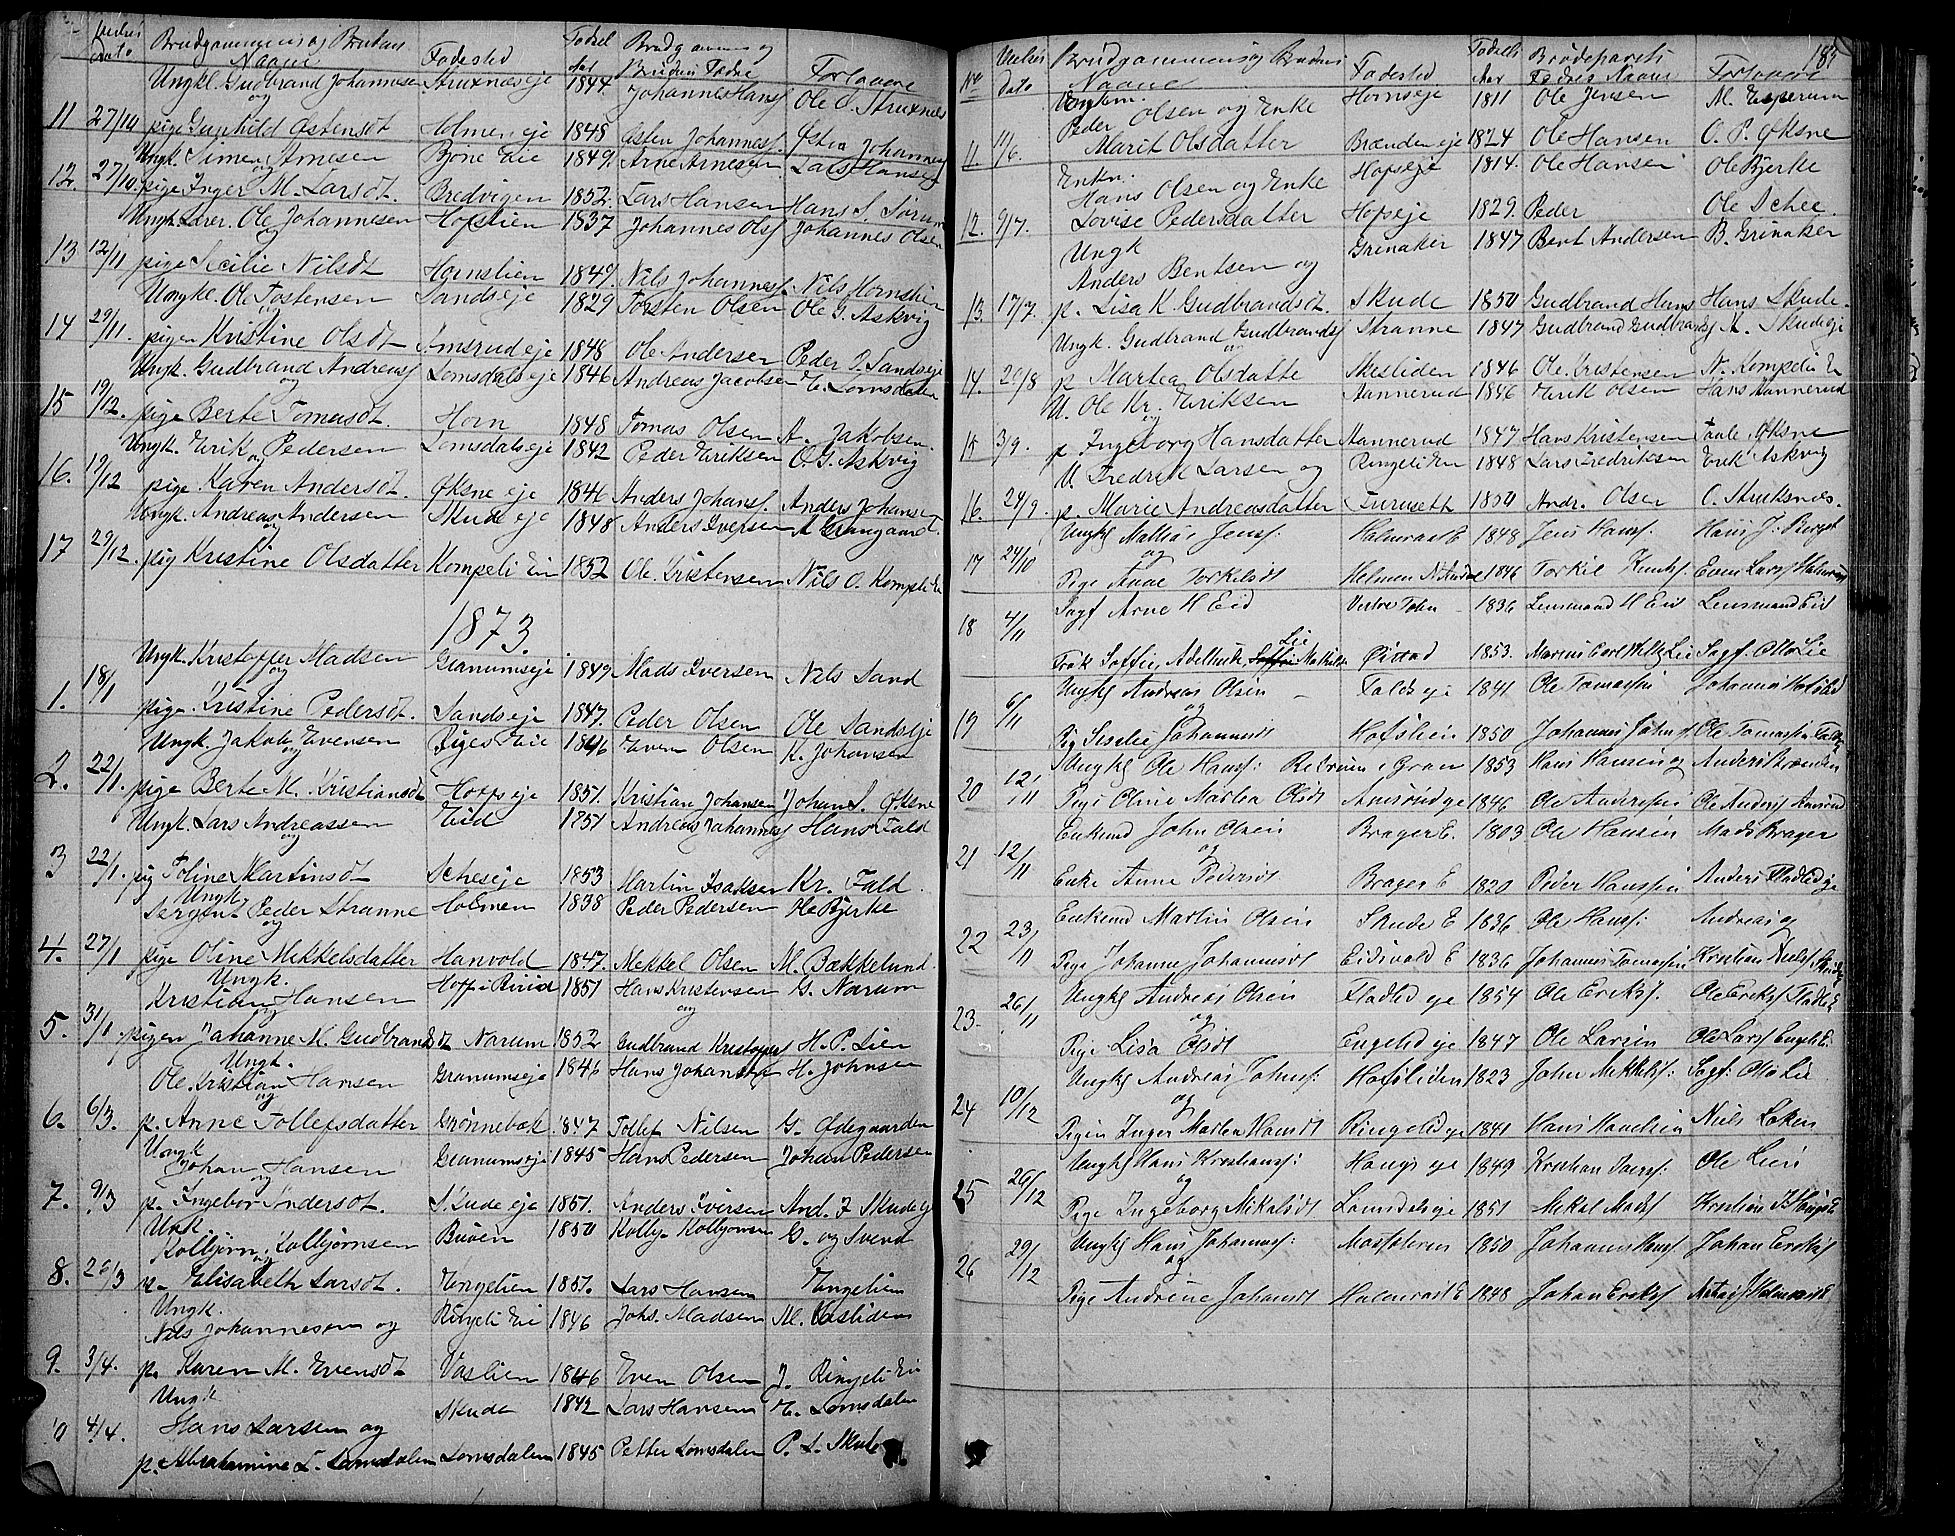 Vielses Dato Brudgommens og Brudens Navne Fødested Fødsels Aar Brudgommens og Brudens Fadre Forlovere
Ungkl. Gudbrand Johannesen og Struxnæseje 1844. Johannes Hanss Ole O. Struxnæs
11 27/10 pige Gunhild Østensdt Holmen eje 1848 Østen Johanness. Østen Johannes
Ungk. Simen Arnesen og Bjøne Eie 1849. Arne Arnesen Lars Hansen
12. 27/10. pige Inger M. Larsdt. Bredvigen 1852. Lars Hansen Hans S. Sørum
Ungk. Lærer. Ole Johannesen og Hofslien 1837 Johannes Olss Johannes Olsen
13 12/11 pige Secilie Nilsdt Hornslien 1849. Nils Johanness. Nils Hornslien
Ungkl. Ole Tostensen og Sandseje 1829 Torsten Olsen Ole G. Askvig
14 29/11. pigen Kristine Olsdt Amsrudeje 1848 Ole Andersen Peder O. Sandseje
Ungk. Gudbrand Andreass og Lomsdalseje 1846 Andreas Jacobsen E. Lomsdalen
15 19/12. pige Berte Tomasdt. Horn 1848 Tomas Olsen A. Jakobsen
Ungk. Erik Pedersen og Lomsdalseje 1842 Peder Eriksen O. G. Askvig
16. 19/12 pige Karen Andersdt. Øksne eje 1846 Anders Johans. Anders Johansen
Ungk. Andreas Andersen og Skude eje 1848 Anders Iversen A
17 29/12. pig Kristine Olsdatter Kompeli Eie 1852 Ole Kristensen Nils O. Kompeli Ei
1873.
Ungk. Kristoffer Madsen og Granumseje 1849 Mads Iversen Nils Sand
1. 18/1 pige Kristine Pedersdt. Sandseje 1847. Peder Olsen Ole Sandseje
Ungk. Jakob Evensen og Eie 1846 Even Olsen K. Johansen
2. 22/1. pige Berte M. Kristiansdt Hoffseje 1851. Kristian Johansen Johan S. Øksne
Ungk. Lars Andreassen og Eid 1851 Andreas Johanness Hans Fald
3 22/1. pig Toline Martinsdt Scheseje 1853 Martin Isaksen Kr. Fald.
Ungk. Sergent Peder Stranne og Holmen 1838 Peder Pedersen He Bjerke
4. 27/1 pige Oline Mekkelsdatter Hanvold 1847. Mekkel Olsen M. Bækkelund.
Ungk. Kristian Hansen og Hoff i Eie 1851 Hans Kristensen og G. Narum
5. 31/1 pigen Johanne M. Gudbrandsdt Narum 1852 Gudbrand Kristoffers H. P. Lien
Ungk. Ole Kristian Hansen og Granumseje 1846 Hans Johansen H. Johnsen
6. 6/3. p. Anne Tollefsdatter Grønnebæk 1847 Tollef Nilsen G. Ødegaarden
Ungk Johan Hansen og Granumseje 1845 Hans Pedersen Johan Pedersen
7. 9/3 p. Ingebor Andersdt. Skude eje 1851. Anders Iversen And. I Skude ej
Ungk Kolbjørn Kolbjørnsen og Buøen 1850 Kolbjø. Kolbjørnsen G. og Svend
8. 26/3 p. Elisabeth Larsdt. Engelien 1851. Lars Hansen Engelien
Ungk. Nils Johannesen og Ringeli Eie 1846 Johs. Madsen M. Vaslien
9. 3/4. p. Karen M. Evensdt Vaslien 1846 Even Olsen J. Ringeli Eie
Ungk Hans Larsen og Skude 1842 Lars Hansen E. Lomsdalen
10 4/4. p. Abrahamine L. Lomsdalen Lomsdalen 1845 Petter Lomsdalen P. L. Skude
183
No Vielses dato Brudgommens og Brudens Navne Fødested Fødsels Aar Brudeparets Fadres Navne Forlovere
Enkem. Peder Olsen og Enke Hornseje 1811 Ole Jensen M. Esperum
11. 11/6. Marit Olsdatter Brænden eje 1824 Ole Hansen O. P. Øksne
Enkm. Hans Olsen og Enke Hofseje 1814. Ole Hansen Ole Bjerke
12. 9/7. Lovise Pedersdatter Hofseje 1829. Peder Ole Schee.
Ungk Anders Bentsen og Grinaker 1847 Bent Andersen B. Grinaker
13. 17/7. p. Lisa K. Gudbrandsdt. Skude 1850 Gudbrand Hans Hans Skude.
Ungk. Gudbrand Gudbrands og Stranne 1847 Gudbrand Gudbrands N. Skudeeje
14. 20/8 p Martea Olsdatte Skesliden 1846 Ole Kristensen N. Kompeli E
U. Ole Kr. Eriksen og Aannerud 1846 Erik Olsen Hans Aannerud
15 3/9. p Ingeborg Hansdatter Aannerud 1847 Hans Kristensen Paule Øksne
U. Fredrik Larsen og Ringeli Eie 1848 Lars Fredriksen Erik Askvig
16. 24/9. p. Marie Andreasdatter Furuseth 1850 Andr. Olsen O. Struksnæs.
Ungkl Mathias Jenss. og Halmrast E 1848 Jens Hanss. Hans J. Berget
17 24/10 Pige Anne Torkilsdt Helmen N. Aurdal 1846 Torkil Knuts. Even Larss Halmrast
Sagf Arne H Eid Vestre Toten 1836 Lensmand H Eid Lensmand Eid
18 4/11 Frøk Soffie Adelheide Mathilde Lie Østad 1853. Marius Carl Lie Sagf. Otto Lie
Ungkl Andreas Olsen og Falds eje 1841 Ole Tomassen Johannes Hofslid
19 6/11 Pig Siselie Johannesdt Hofslien 1850 Johannes Johns Ole Tomassen Falds
Ungkl Ole Hanss: i Gran 1853 Hans Hansen og Anders Brænden
20 12/11 Pige Oline Martea Olsdt Amsrud eje 1846 Ole Andersen Ole Anders Amsrud
Enkemd John Olsen og Brager E. 1803 Ole Hansen Mads Brager
21 12/11 Enke Anne Pedersdt Brager E 1820 Peder Hanssen Anders Fladlid eje
Enkemd Martin Olsen Skude E 1836. Ole Hanss. Andreas og
22 23/11 Pige Johanne Johannesdt Eidsvold E 1836 Johannes Tomassen Kristian Skude
Ungkl Andreas Olsen og Fladlid eje 1854 Ole Erikss. Ole Erikss Fladlid E
23. 26/11 Pige Lisa Olsdt Engelid eje 1847 Ole Larsen Ole Larss Engeli E.
Ungkl Andreas Johns: og Hofsliden 1823 John Mekkels. Sagf: Otto Lie
24 10/12 Pigen Inger Martea Hansdt Ringelid eje 1841 Hans Hansen Niels Løken
Ungkl Hans Kristians: og Haugs eje 1849 Kristian Ole Lien
25 26/12 Pige Ingeborg Mikalsdt Lomsdals eje 1851 Mikal Mads Kristian Haugs E
Ungkl Hans Johanness: og 1850 Johannes Hanss. Johan Erikss
26 29/12 Pige Andrine Johansdt Halmrast E 1848 Johan Erikss Halmrast E